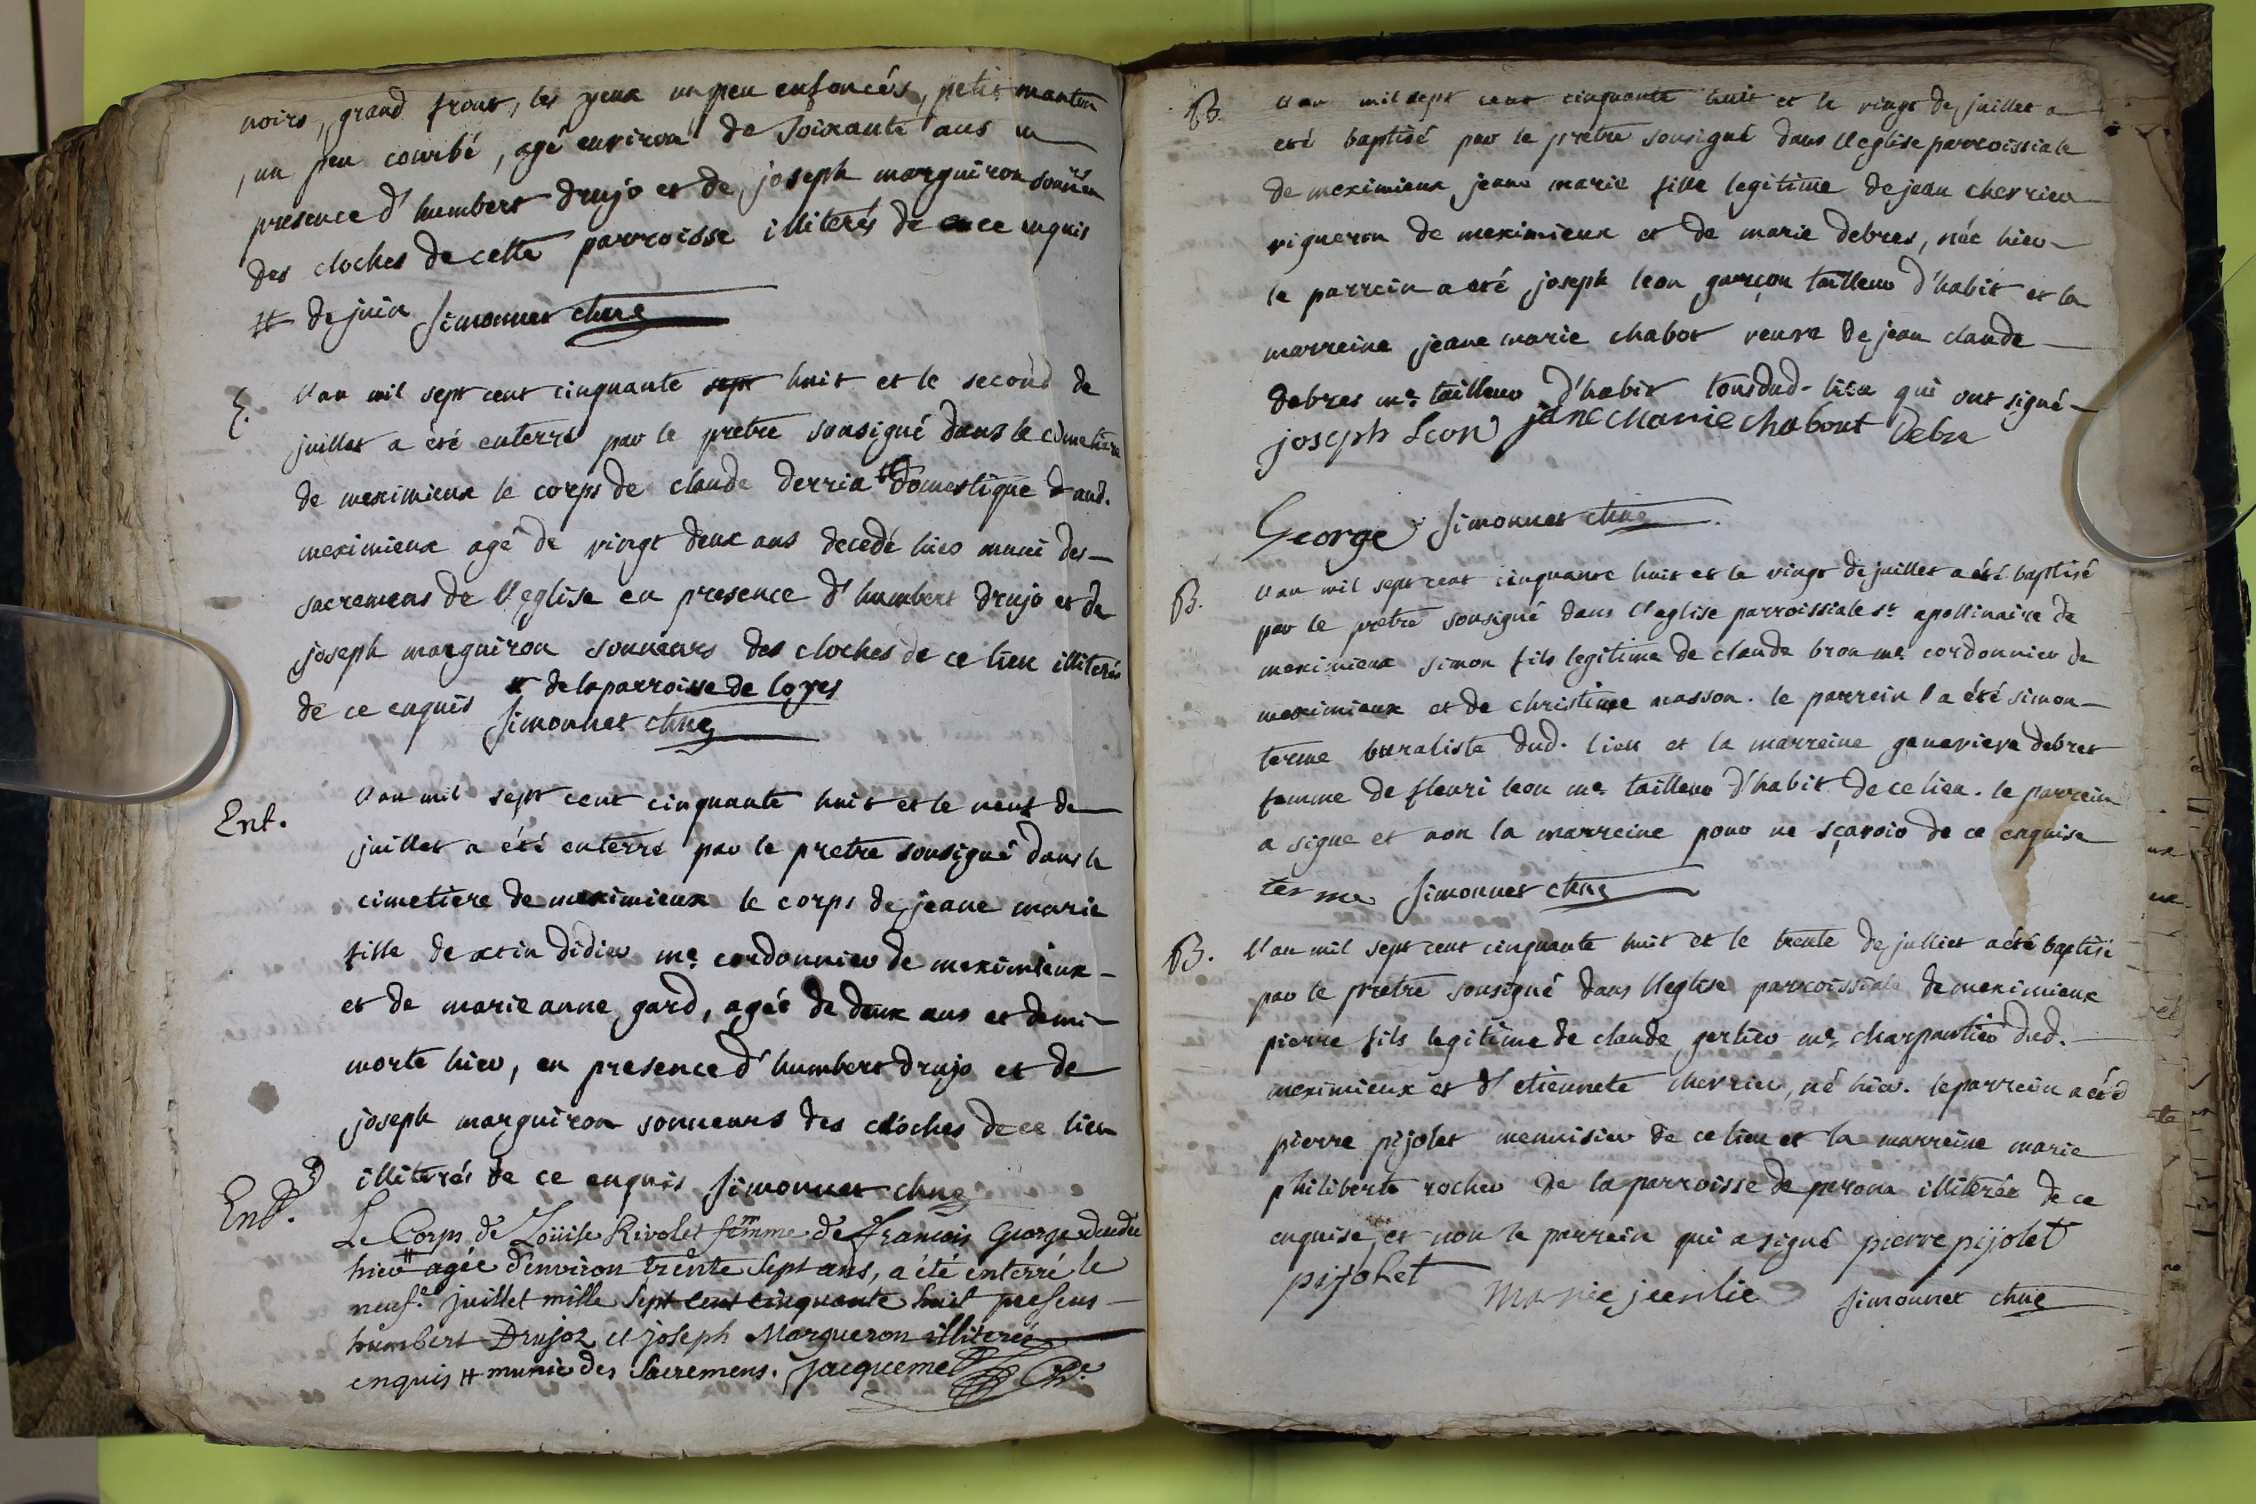 noirs, grand front, les yeux un peu enfoncés, petit manton
, un peu courbé, agé environ de soixante ans en
presence d'humbert drujo et de joseph marguiron sonneurs
des cloches de cette parroisse illiterés de ce enquis
# de juin Simonnet chne
E.
l'an mil sept cent cinquante sept huit et le second de
juillet a été enterré par le pretre sousigné dans le cimetiere
de meximieux le corps de claude derria # domestique d'aud.
meximieux agé de vingt deux ans decedé hier muni des
sacremens de l'eglise en presence d'humbert drujo et de
joseph marguiron sonneurs des cloches de ce lieu illiterés
de ce enquis # de la parroisse de loyes
Simonnet chne
Ent.
l'an mil sept cent cinquante huit et le neuf de
juillet a été enterré par le pretre sousigné dans le
cimetiere de meximieux le corps de jeane marie
fille de xtin didier me. cordonnier de meximieux
et de marie anne gard, agée de deux ans et demi
morte hier, en presence d'humbert drujo et de
joseph marguiron sonneurs des cloches de ce lieu
illiterés de ce enquis Simonnet chne
Ent.
Le Corps de Loüise Rivolet femme de François George
hier # agée d'environ trente Sept ans, a été enterré le
neufe. juillet mille Sept Cent Cinquante huit presens
humbert Drujoz et joseph Margueron illiterés
enquis # munie des Sacremens. Jacquemet
B.
l'an mil sept cent cinquante huit et le vingt de juillet a
eté baptisé par le pretre sousigné dans l'eglise parroissiale
de meximieux jeane marie fille legitime de jean cherrier
vigneron de meximieux et de marie debres, née hier
le parrein a eté joseph leon garçon tailleur d'habit et la
marreine jeane marie chabot veuve de jean claude
debres me. tailleur d'habit tous dud. lieu qui ont signé
joseph Leon jane Marie chabout Debre
George Simonnet chne
B.
l'an mil sept cent cinquante huit et le vingt de juillet a été baptisé
par le pretre sousigné dans l'eglise parroissiale st apollinaire de
meximieux simon fils legitime de claude bron me. cordonnier de
meximieux et de christine masson. le parrein a été simon
terme buraliste dud. lieu et la marreine genevieve debres
femme de fleuri leon me. tailleur d'habit de ce lieu. le parrein
a signe et non la marreine pour ne sçavoir de ce enquise
terme Simonnet chne
B.
l'an mil sept cent cinquante huit et le trente de julliet a été baptisé
par le pretre sousigné dans l'eglise parroissiale de meximieux
pierre fils legitime de claude gerlier me. charpantier dud.
meximieux et d'etiennete cherrier, né hier. le parrein a été
pierre pijolet menuisier de ce lieu et la marreine marie
philiberte rocher de la parroisse de perona illiterée de ce
enquise, et non le parrein qui a signé pierre pijolet
pijolet Marie jeerlie Simonnet chne